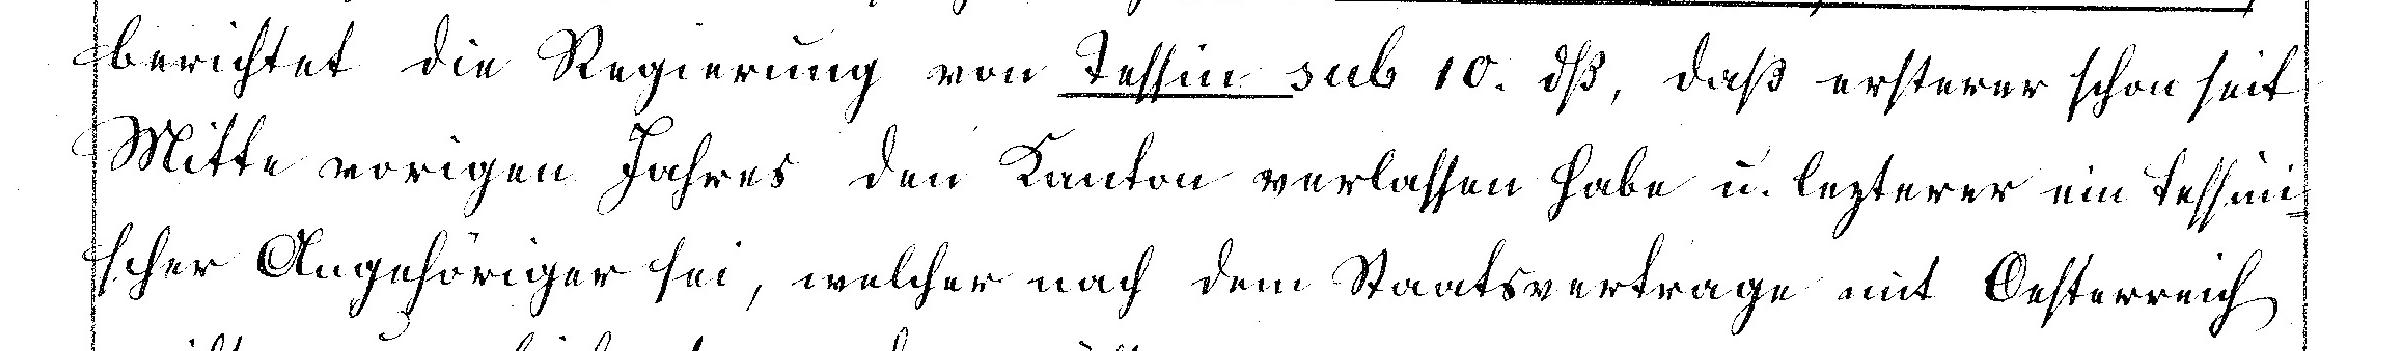 berichtet die Regierung von Tessin sub 10. dß, daß ersterer schon seit
Mitte vorigen Jahres den Kanton verlassen habe u. lezterer ein tessini-
scher Angehöriger sei, welcher nach dem Staatsvertrage mit Oesterreich